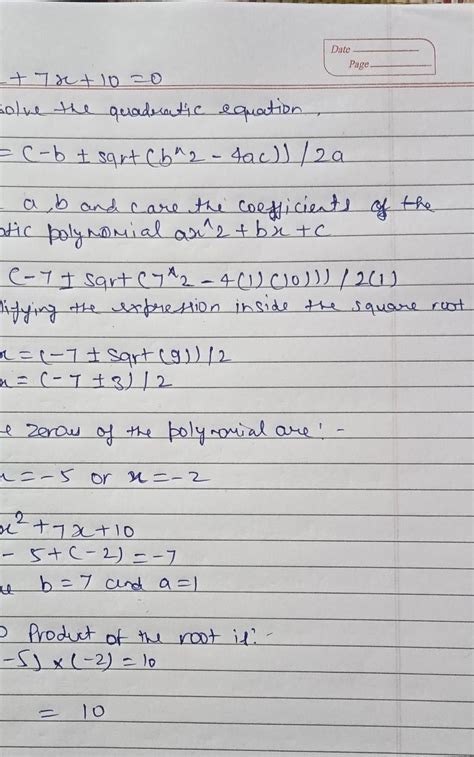 Date
Page
+ 7x + 10 = 0
solve the quadratic equation,
= (-b ± sqrt (b^2 - 4ac)) / 2a
a, b and c are the coefficients of the
tic polynomial ax^2 + bx + c
(-7 ± sqrt (7^2 - 4(1) (10))) / 2(1)
lifying the expression inside the square root
x = (-7 ± sqrt (9)) / 2
x = (-7 ± 3) / 2
e zeroes of the polynomial are: -
x = -5 or x = -2
x² + 7x + 10
- 5 + (-2) = -7
b = 7 and a = 1
Product of the root is: -
-5) × (-2) = 10
= 10